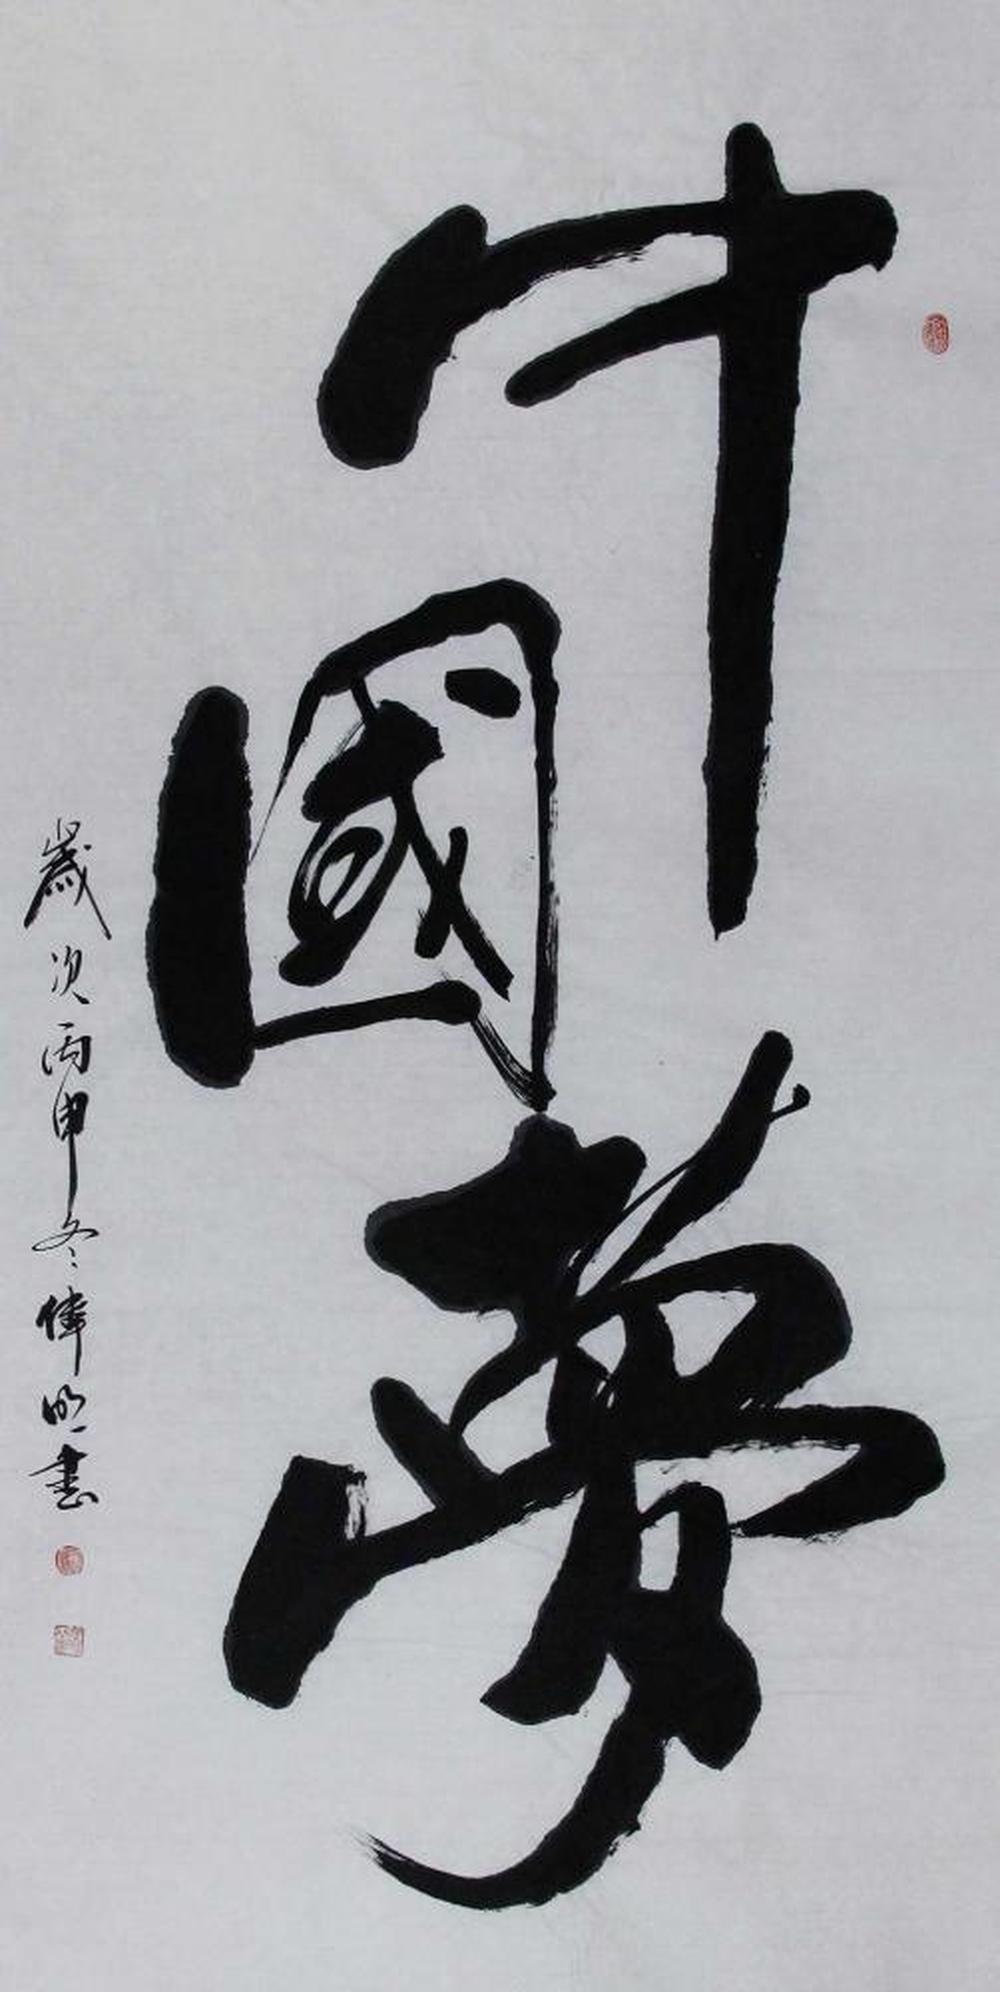 中國夢
歲次丙申冬偉明書